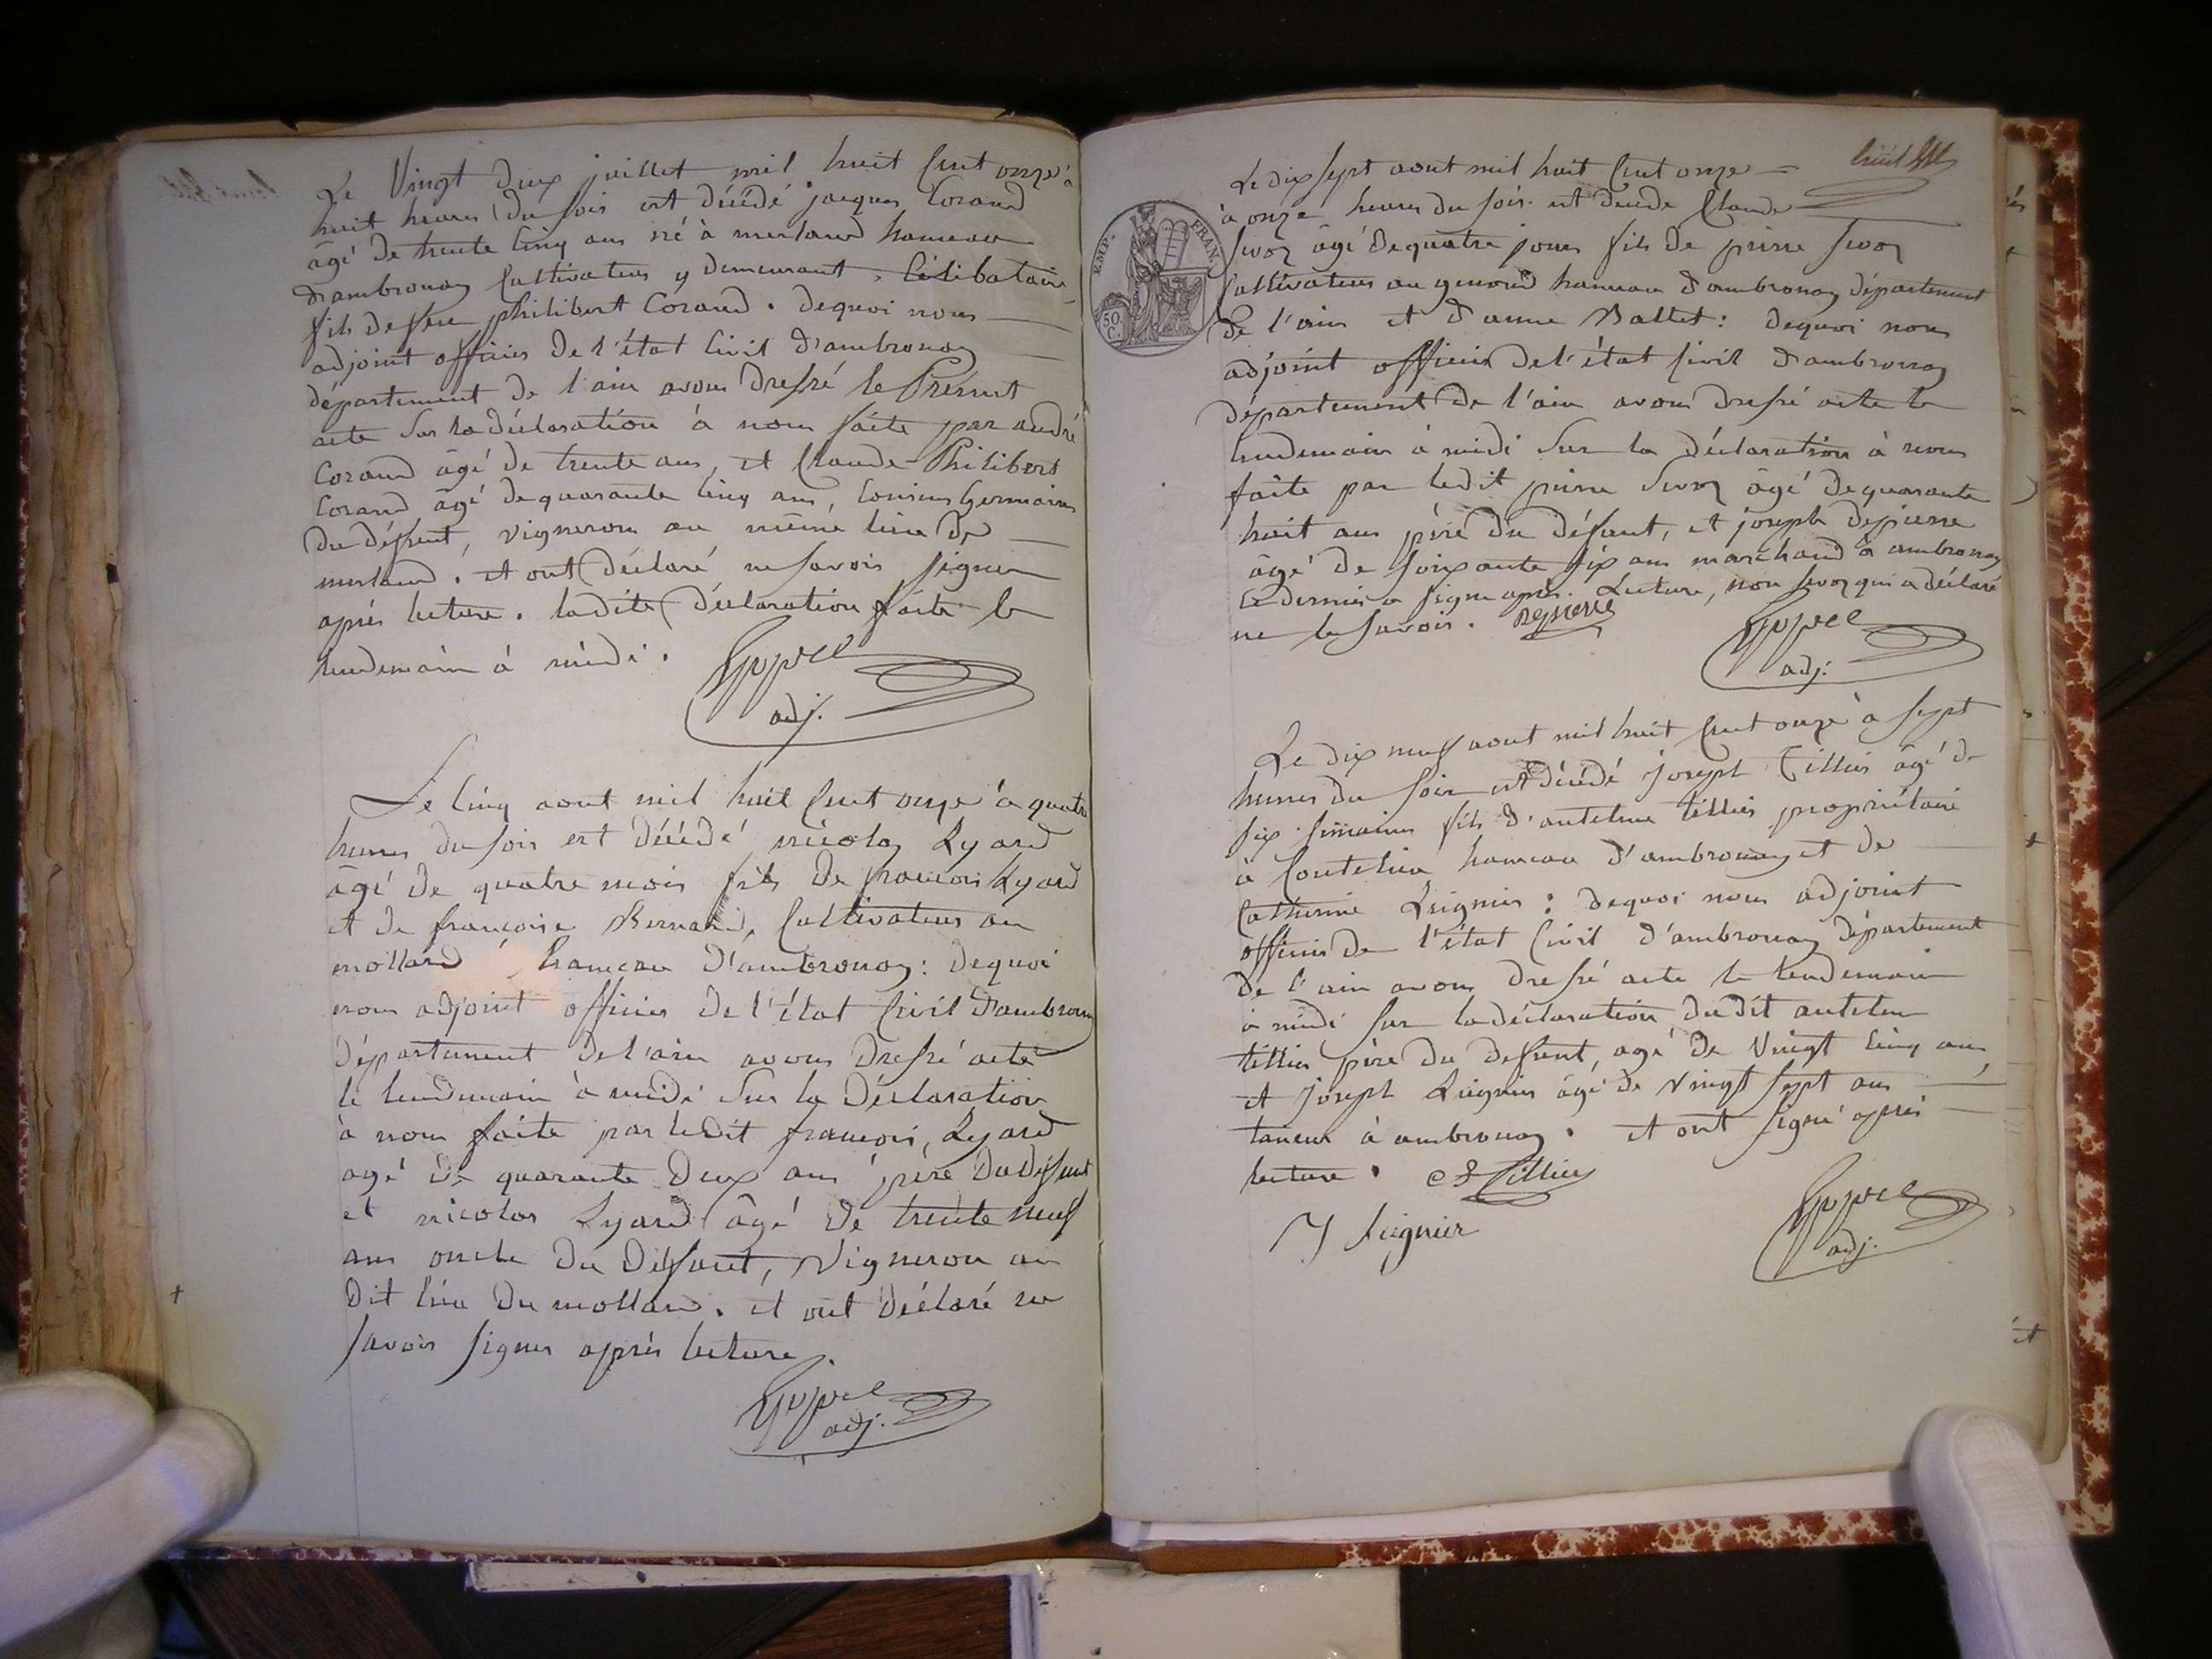 Le Vingt deux juillet mil huit Cent onze à
huit heures du soir est décédé jacques Corand
âgé de trente Cinq ans né à merland hameau
d'ambronay Cultivateur y demeurant, Célibataire
fils de feu philibert Corand. dequoi nous
adjoint officier de l'état Civil d'ambronay
département de l'ain avons dressé le Présent
acte sur la déclaration à nous faite par andré
Corand âgé de trente ans, et Claude Philibert
Corand âgé de quarante Cinq ans, Cousins Germains
du défunt, vignerons au même lieu de
merland. et ont déclaré ne savoir signer
après lecture. ladite déclaration faite le
lendemain à midi.
adj.
Le Cinq aout mil huit Cent onze à quatre
heures du soir est décédé nicolas Lyard
âgé de quatre mois fils de francois Lyard
et de francoise Bernard, Cultivateurs au
mollard hameau d'ambronay: dequoi
nous adjoint officier de l'état Civil d'ambronay
département de l'ain avons dressé acte
le lendemain à midi sur la déclaration
à nous faite par ledit francois Lyard
agé de quarante deux ans père du défunt
et nicolas Lyard âgé de trente neuf
ans oncle du défunt, vigneron au
dit lieu du mollard. et ont déclaré ne
savoir signer après lecture.
adj.
huit
Le dix sept aout mil huit Cent onze
à onze heures du soir est décédé Claude
Sevoz âgé de quatre jours fils de pierre Sevoz
Cultivateur au genoud hameau d'ambronay département
de l'ain et d'anne Ballet: dequoi nous
adjoint officier de l'état Civil d'ambronay
département de l'ain avons dressé acte le
lendemain à midi sur la déclaration à nous
faite par ledit pierre Sevoz âgé de quarante
huit ans père du défunt, et joseph depierre
âgé de soixante six ans marchand à ambronay
Ce dernier a signé après Lecture, non Sevoz qui a déclaré
ne le savoir. Depierre
adj.
EMP. FRAN.
50 C.
Le dix neuf aout mil huit Cent onze à sept
heures du soir est décédé Joseph Tillier âgé de
six semaines fils d'antelme tillier propriétaire
à Coutelieu hameau d'ambronay et de
Catherine Leignier: dequoi nous adjoint
officier de l'état Civil d'ambronay département
de l'ain avons dressé acte le lendemain
à midi sur la déclaration dudit antelme
tillier père du defunt, agé de Vingt Cinq ans,
et Joseph Leignier âgé de Vingt sept ans
taneur à ambronay. et ont signé après
lecture. Tillier
J Leignier
adj.